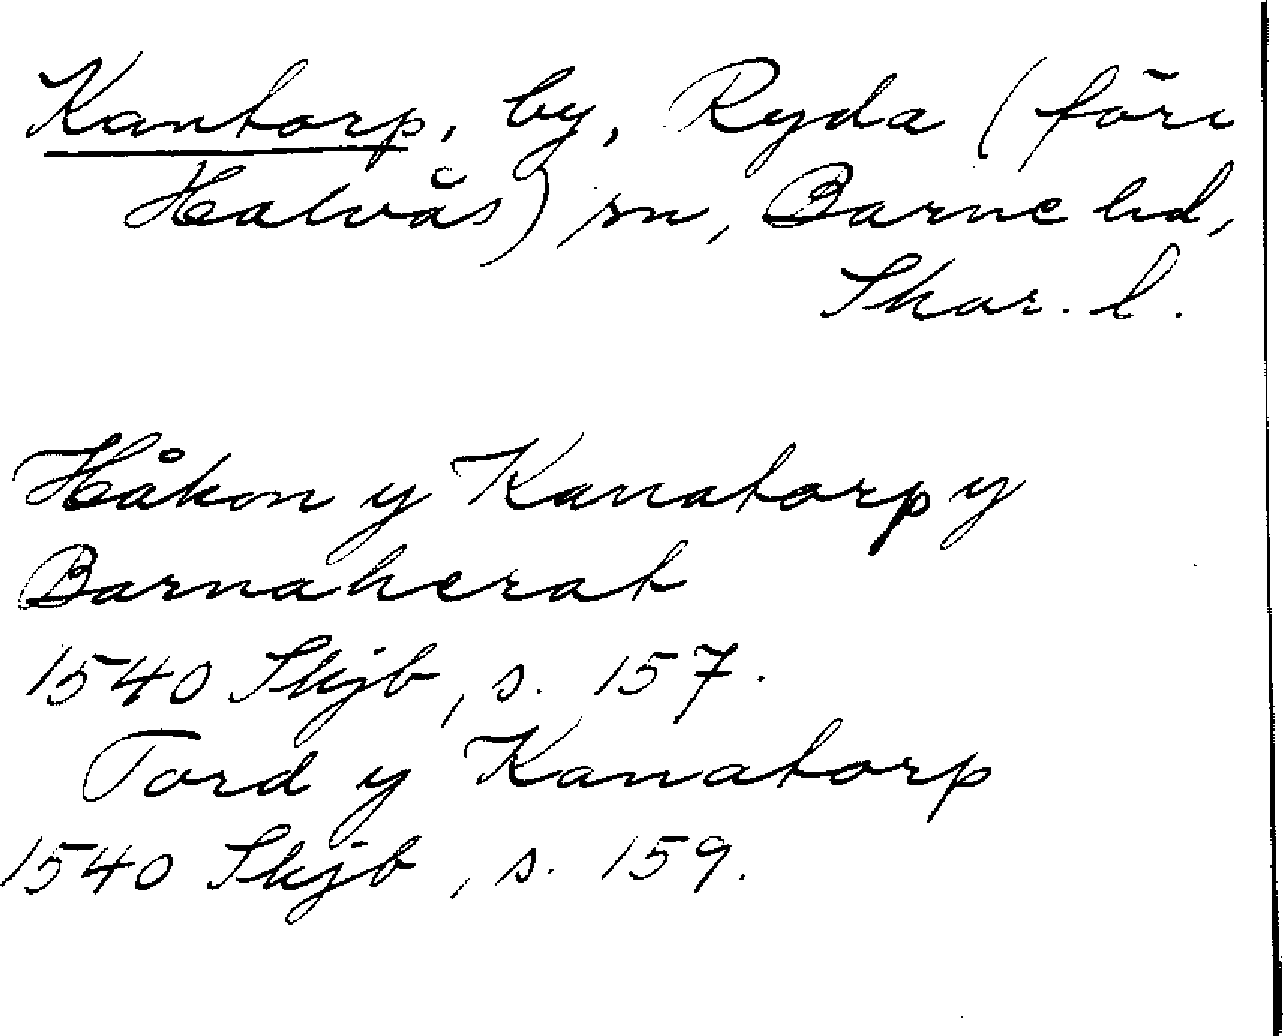 Kantorp, by, Ryda (förr
Halvås) sn, Barne hd,
Skar. l.
Håkon y Kanatorp y
Barnaherat
1540 Skjb, s. 157.
Tord y Kanatorp
1540 Skjb, s. 159.